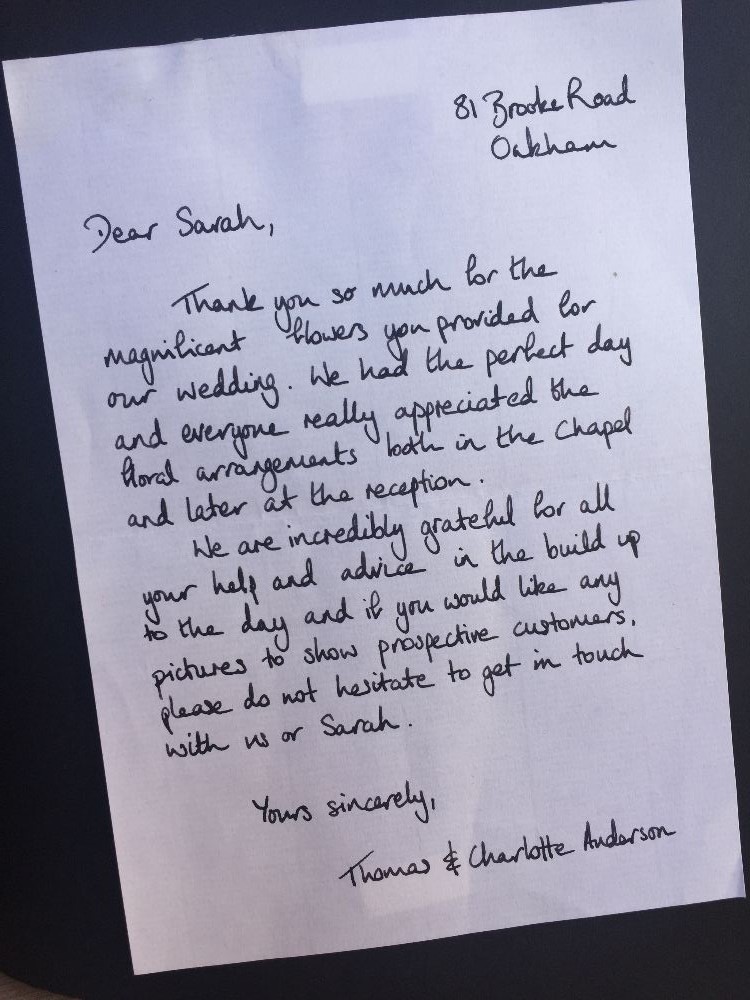 81 Brooke Road
Oakham
Dear Sarah,
Thank you so much for the
magnificent flowers you provided for
our wedding. We had the perfect day
and everyone really appreciated the
floral arrangements both in the chapel
and later at the reception.
We are incredibly grateful for all
your help and advice in the build up
to the day and if you would like any
pictures to show prospective customers,
please do not hesitate to get in touch
with us or Sarah.
Yours sincerely,
Thomas & Charlotte Anderson